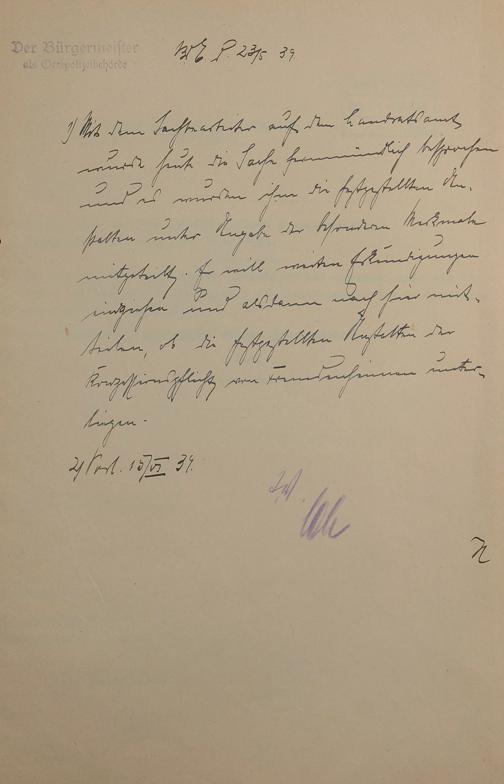 Der Bürgermeister
als Ortspolizeibehörde
P. 23/5 39.
1) Mit dem Sachbearbeiter auf dem Landratsamt
wurde heut die Sache fernmündlich besprochen
und es wurden ihm die festgestellten An-
stalten unter Angabe der besonderen Merkmale
mitgeteilt. Er will weitere Erkundigungen
einziehen und alsdann nach hier mit-
teilen, ob die festgestellten Anstalten der
Konzessionspflicht von Fremdenheimen unter-
liegen.
2) Vorl. 15/VI 39.